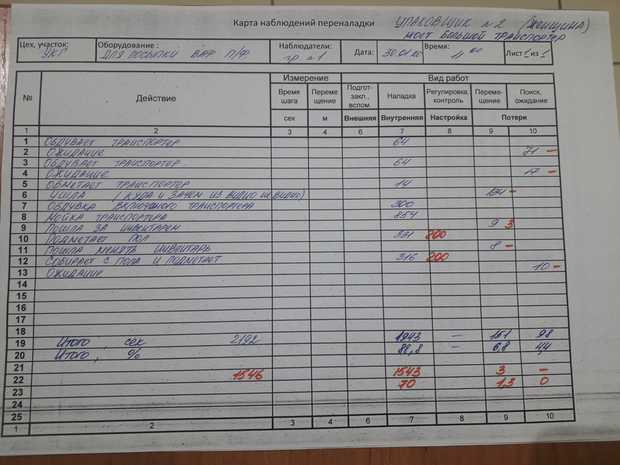 Карта наблюдений переналадки УПАКОВЩИК №2 (ЖЕНЩИНА)
МОЕТ БОЛЬШОЙ ТРАНСПОРТЕР
Цех, участок: УКГ Оборудование: ДЛЯ ПОСЫПКИ ВАФ П/Ф Наблюдатели: гр №1 Дата: 30.01.20 Время: 11 00 Лист 1 из 1
№ Действие Измерение Вид работ
Время шага Переме щение Подгот- закл., вспом. Наладка Регулировка, контроль Переме- щение Поиск, ожидание
сек м Внешняя Внутренняя Настройка Потери
1 2 3 4 6 7 8 9 10
1 ОБДУВАЕТ ТРАНСПОРТЕР 64
2 ОЖИДАНИЕ 71 –
3 ОБДУВАЕТ ТРАНСПОРТЕР 64
4 ОЖИДАНИЕ 17 –
5 ОБМЕТАЕТ ТРАНСПОРТЕР 14
6 УШЛА (КУДА И ЗАЧЕМ ИЗ ВИДИО НЕ ВИДНО) 134 –
7 ОБДУВКА ВКЛЮЧЕНОГО ТРАНСПОРТЕРА 300
8 МОЙКА ТРАНСПОРТЕРА 854
9 ПОШЛА ЗА ИНВЕНТАРЕМ 9 3
10 ПОДМЕТАЕТ ПОЛ 331 200
11 ПОШЛА МЕНЯТЬ ИНВЕНТАРЬ 8 –
12 СОБИРАЕТ С ПОЛА И ПОДМЕТАЕТ 316 200
13 ОЖИДАНИЕ 10 –
14
15
16
17
18
19 Итого, сек 2192 1943 – 151 98
20 Итого, % 88,8 – 6,8 4,4
21
22 1546 1543 3 –
23 70 1,3 0
24
25
1 2 3 4 6 7 8 9 10